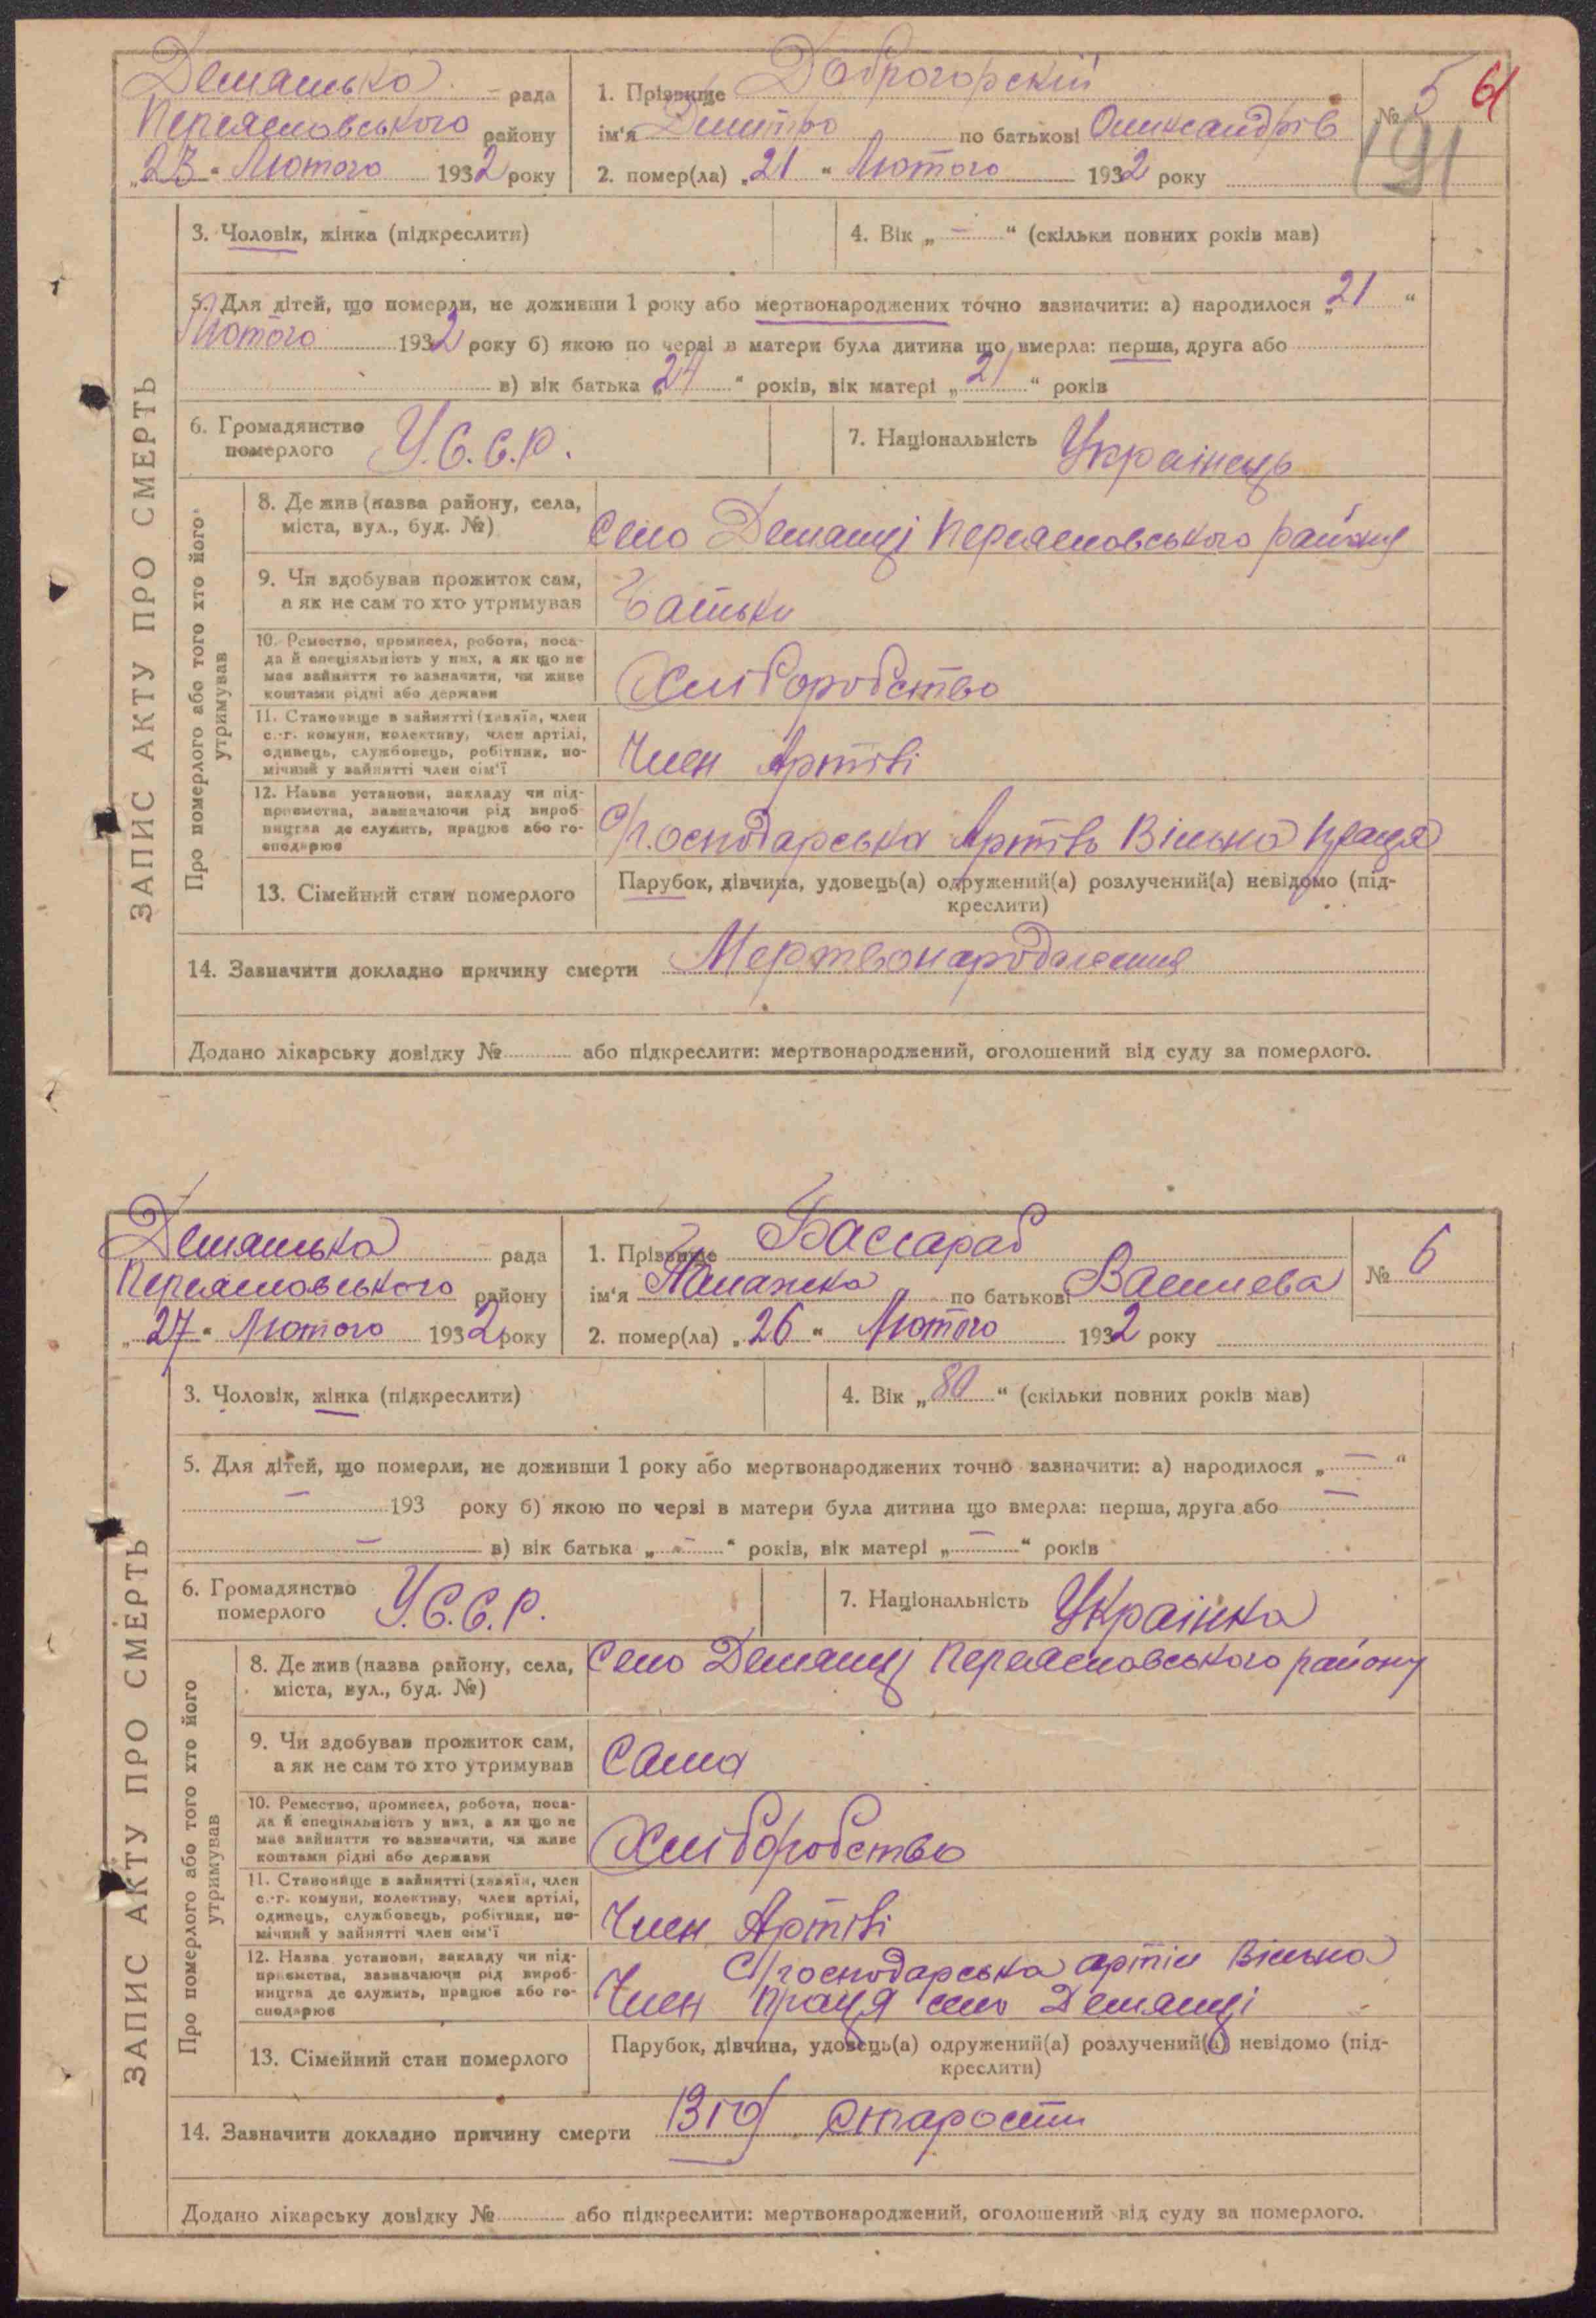 Демянська рада
Переясловського району
„23“ Лютого 1932 року
1. Прізвище Доброгорскій
ім'я Дмитро по батькові Олександрів
2. помер(ла) „21“ Лютого 1932 року
№ 5 61
191
ЗАПИС АКТУ ПРО СМЕРТЬ
3. Чоловік, жінка (підкреслити)
4. Вік „ — “ (скільки повних років мав)
5. Для дітей, що померли, не доживши 1 року або мертвонароджених точно зазначити: а) народилося „21“
Лютого 1932 року б) якою по черзі в матери була дитина що вмерла: перша, друга або
в) вік батька „24“ років, вік матері „21“ років
6. Громадянство
померлого У.С.С.Р.
7. Національність Українець
Про померлого або того хто його
утримував
8. Де жив (назва району, села,
міста, вул., буд. №)
Село Демянці Переясловського району
9. Чи здобував прожиток сам,
а як не сам то хто утримував
Батьки
10. Ремество, промисел, робота, поса-
да й спеціяльність у них, а як що не
мав зайняття то зазначити, чи живе
коштами рідні або держави
Хліборобство
11. Становище в зайнятті (хазяїн, член
с.-г. комуни, колективу, член артілі,
одинець, службовець, робітник, по-
мічний у зайнятті член сім'ї
Член Артілі
12. Назва установи, закладу чи під-
приємства, зазначаючи рід вироб-
ництва де служить, працює або го-
сподарює
С/Господарська Артіль Вільна Праця
13. Сімейний стан померлого
Парубок, дівчина, удовець(а) одружений(а) розлучений(а) невідомо (під-
креслити)
14. Зазначити докладно причину смерти Мертвонародження
Додано лікарську довідку № або підкреслити: мертвонароджений, оголошений від суду за померлого.
Демянська рада
Переясловського району
„27“ Лютого 1932 року
1. Прізвище Бассараб
ім'я по батькові Василева
2. помер(ла) „26“ Лютого 1932 року
№ 6
ЗАПИС АКТУ ПРО СМЕРТЬ
3. Чоловік, жінка (підкреслити)
4. Вік „80“ (скільки повних років мав)
5. Для дітей, що померли, не доживши 1 року або мертвонароджених точно зазначити: а) народилося „ — “
— 193 року б) якою по черзі в матери була дитина що вмерла: перша, друга або —
— в) вік батька „ — “ років, вік матері „ — “ років
6. Громадянство
померлого У.С.С.Р.
7. Національність Українка
Про померлого або того хто його
утримував
8. Де жив (назва району, села,
міста, вул., буд. №)
Село Демянці Переясловського району
9. Чи здобував прожиток сам,
а як не сам то хто утримував
Сама
10. Ремество, промисел, робота, поса-
да й спеціяльність у них, а як що не
мав зайняття то зазначити, чи живе
коштами рідні або держави
Хліборобство
11. Становище в зайнятті (хазяїн, член
с.-г. комуни, колективу, член артілі,
одинець, службовець, робітник, по-
мічний у зайнятті член сім'ї
Член Артілі
12. Назва установи, закладу чи під-
приємства, зазначаючи рід вироб-
ництва де служить, працює або го-
сподарює
С/господарська артіль Вільна
Член праця село Демянці
13. Сімейний стан померлого
Парубок, дівчина, удовець(а) одружений(а) розлучений(а) невідомо (під-
креслити)
14. Зазначити докладно причину смерти Від старости
Додано лікарську довідку № або підкреслити: мертвонароджений, оголошений від суду за померлого.